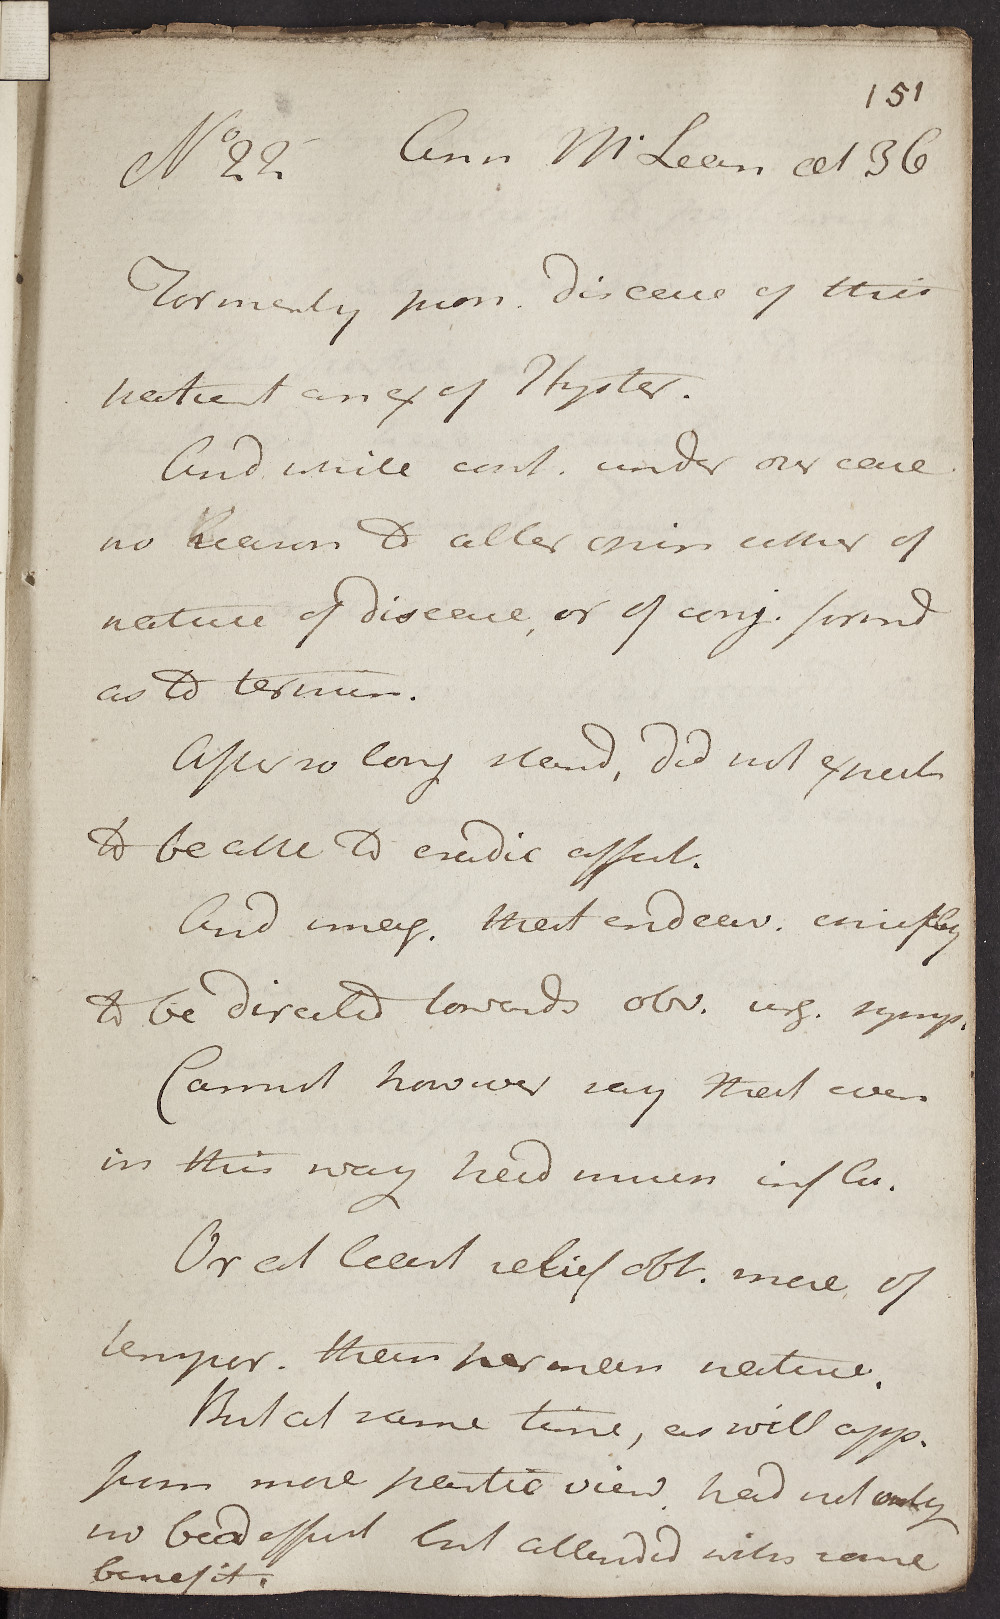 151
No 22 Ann McLean æt 36
Formerly pron. disease of this
patient an ex of Hyster.
And while cont. under our care
no Reason to alter opin either of
nature of disease, or of conj. formd
as to termin.
After so long stand, did not expect
to be able to eradic affect.
And imag. that endeav. chiefly
to be directed towards obv. urg. symp.
Cannot however say that even
in this way had much influ.
Or at least relief obt. more of
tempor. than perman nature.
But at same time, as will app.
from more partic view had not only
no bad effect but attended with some
benefit.